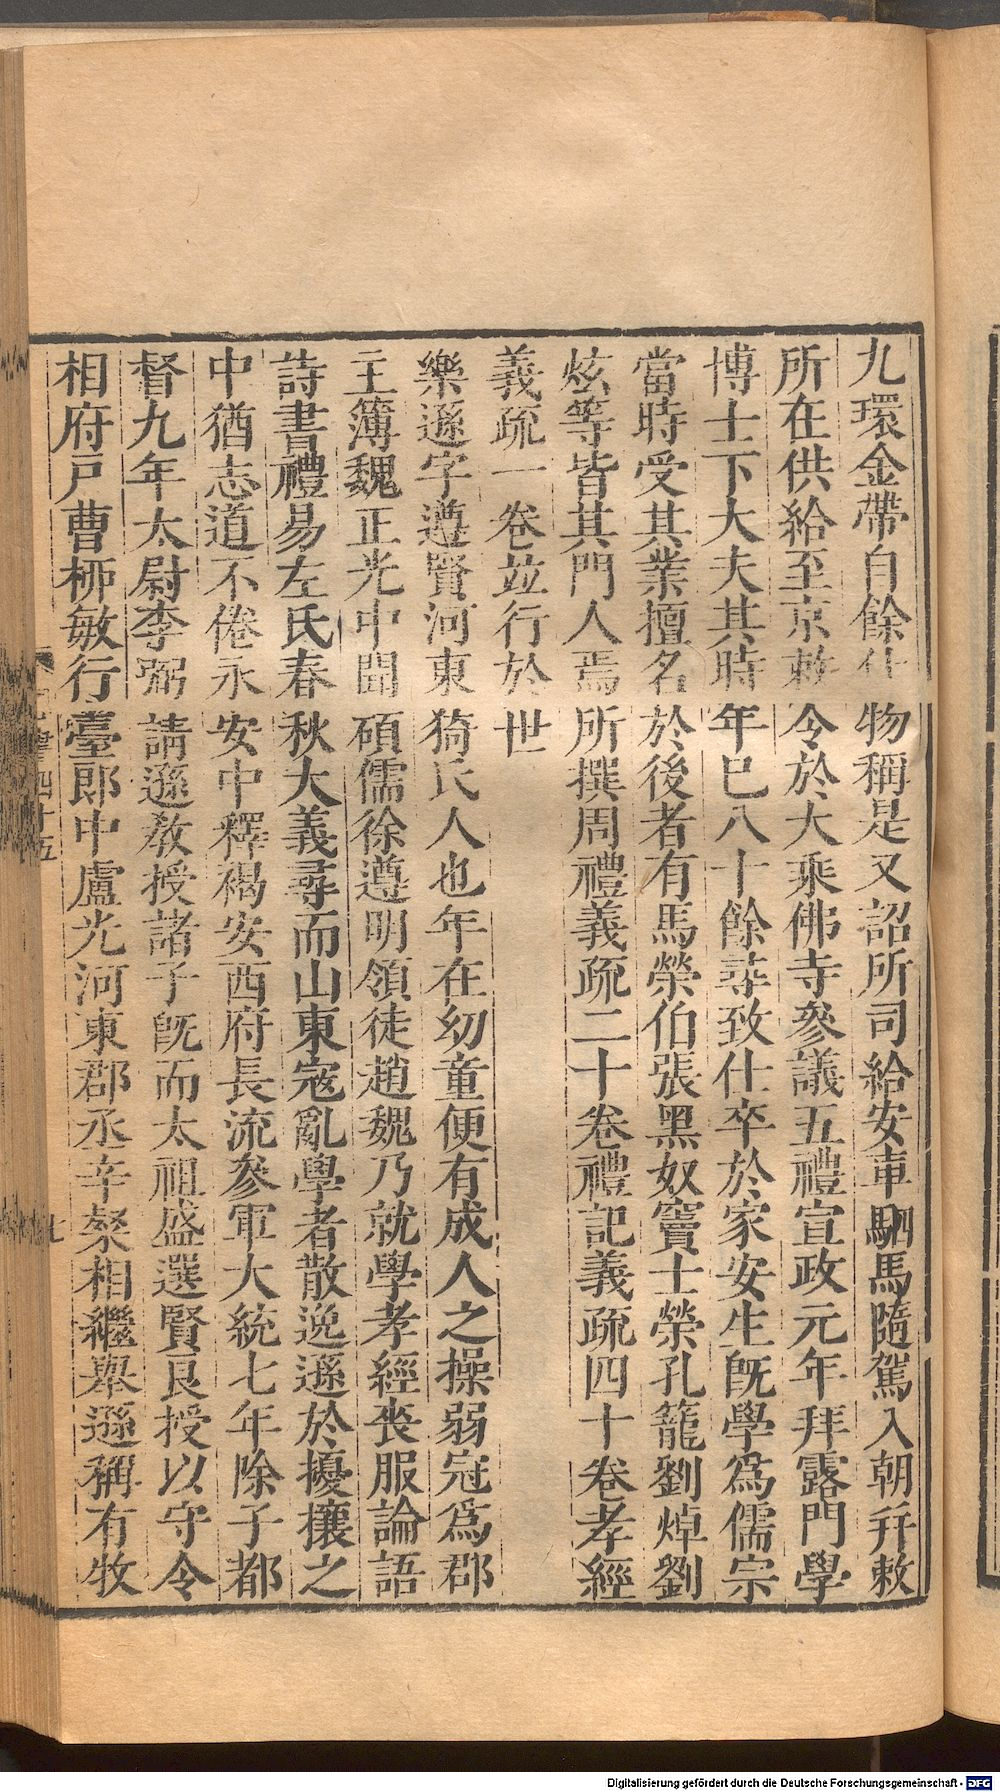 九環金帶自餘什物稱是又詔所司給安車駟馬隨駕入朝幷敕
所在供給至京敕令於大乘佛寺參議五禮宣政元年拜露門學
博士下大夫其時年已八十餘尋致仕卒於家安生旣學爲儒宗
當時受其業擅名於後者有馬榮伯張黑奴竇士榮孔籠劉焯劉
炫等皆其門人焉所撰周禮義疏二十卷禮記義疏四十卷孝經
義疏一卷竝行於世
樂遜字遵賢河東猗氏人也年在幼童便有成人之操弱冠爲郡
主簿魏正光中聞碩儒徐遵明領徒趙魏乃就學孝經喪服論語
詩書禮易左氏春秋大義尋而山東寇亂學者散逸遜於擾攘之
中猶志道不倦永安中釋褐安西府長流參軍大統七年除子都
督九年太尉李弼請遜敎授諸子旣而太祖盛選賢良授以守令
相府戶曹栁敏行臺郎中盧光河東郡丞辛粲相繼舉遜稱有牧
四十五
Digitalisierung gefördert durch die Deutsche Forschungsgemeinschaft - DFG